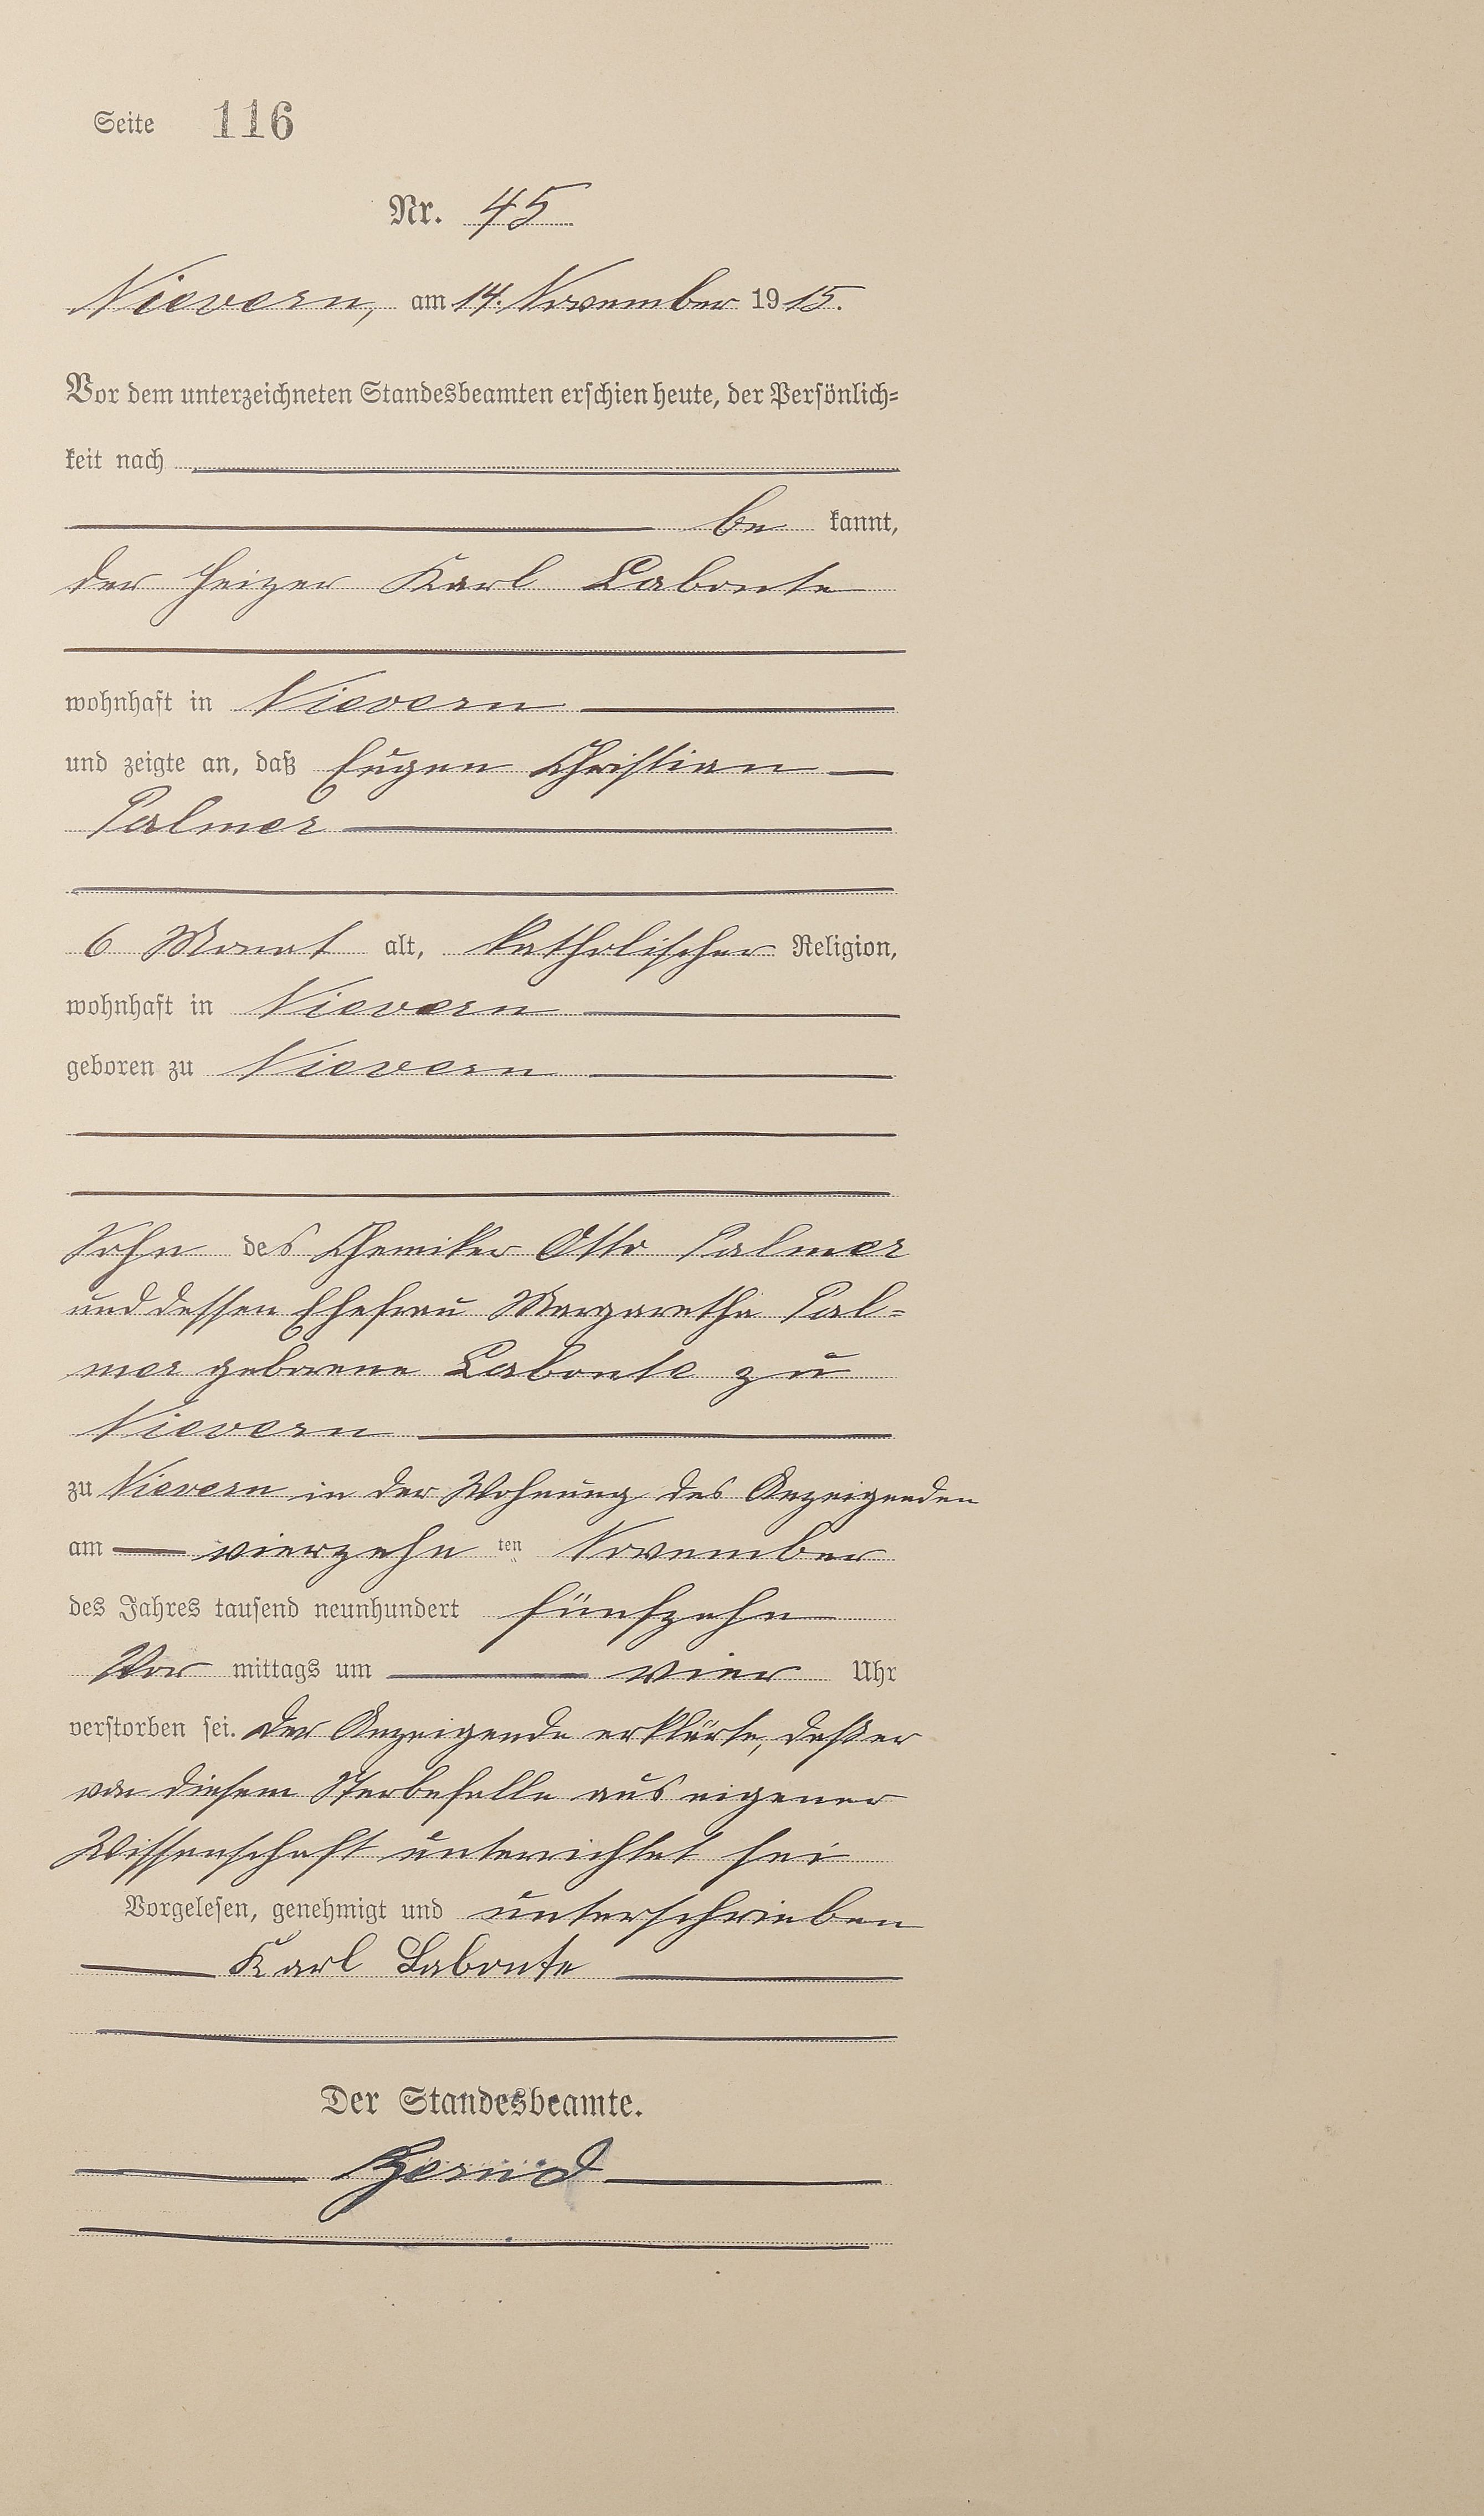 Seite 116
Nr. 45
Nievern, am 14. November 1915.
Vor dem unterzeichneten Standesbeamten erschien heute, der Persönlich-
keit nach
be kannt,
der Heizer Karl Labonte
wohnhaft in Nievern
und zeigte an, daß Eugen Christian
Palmer
6 Monat alt, katholischer Religion,
wohnhaft in Nievern
geboren zu Nievern
Sohn des Chemiker Otto Palmer
und dessen Ehefrau Margaretha Pal-
mer geborene Labonte zu
Nievern
zu Nievern in der Wohnung des Anzeigenden
am vierzehn ten November
des Jahres tausend neunhundert fünfzehn
Vor mittags um vier Uhr
verstorben sei. Der Anzeigende erklärte, daß er
von diesem Sterbefalle aus eigener
Wissenschaft unterrichtet sei
Vorgelesen, genehmigt und unterschrieben
Karl Labonte
Der Standesbeamte.